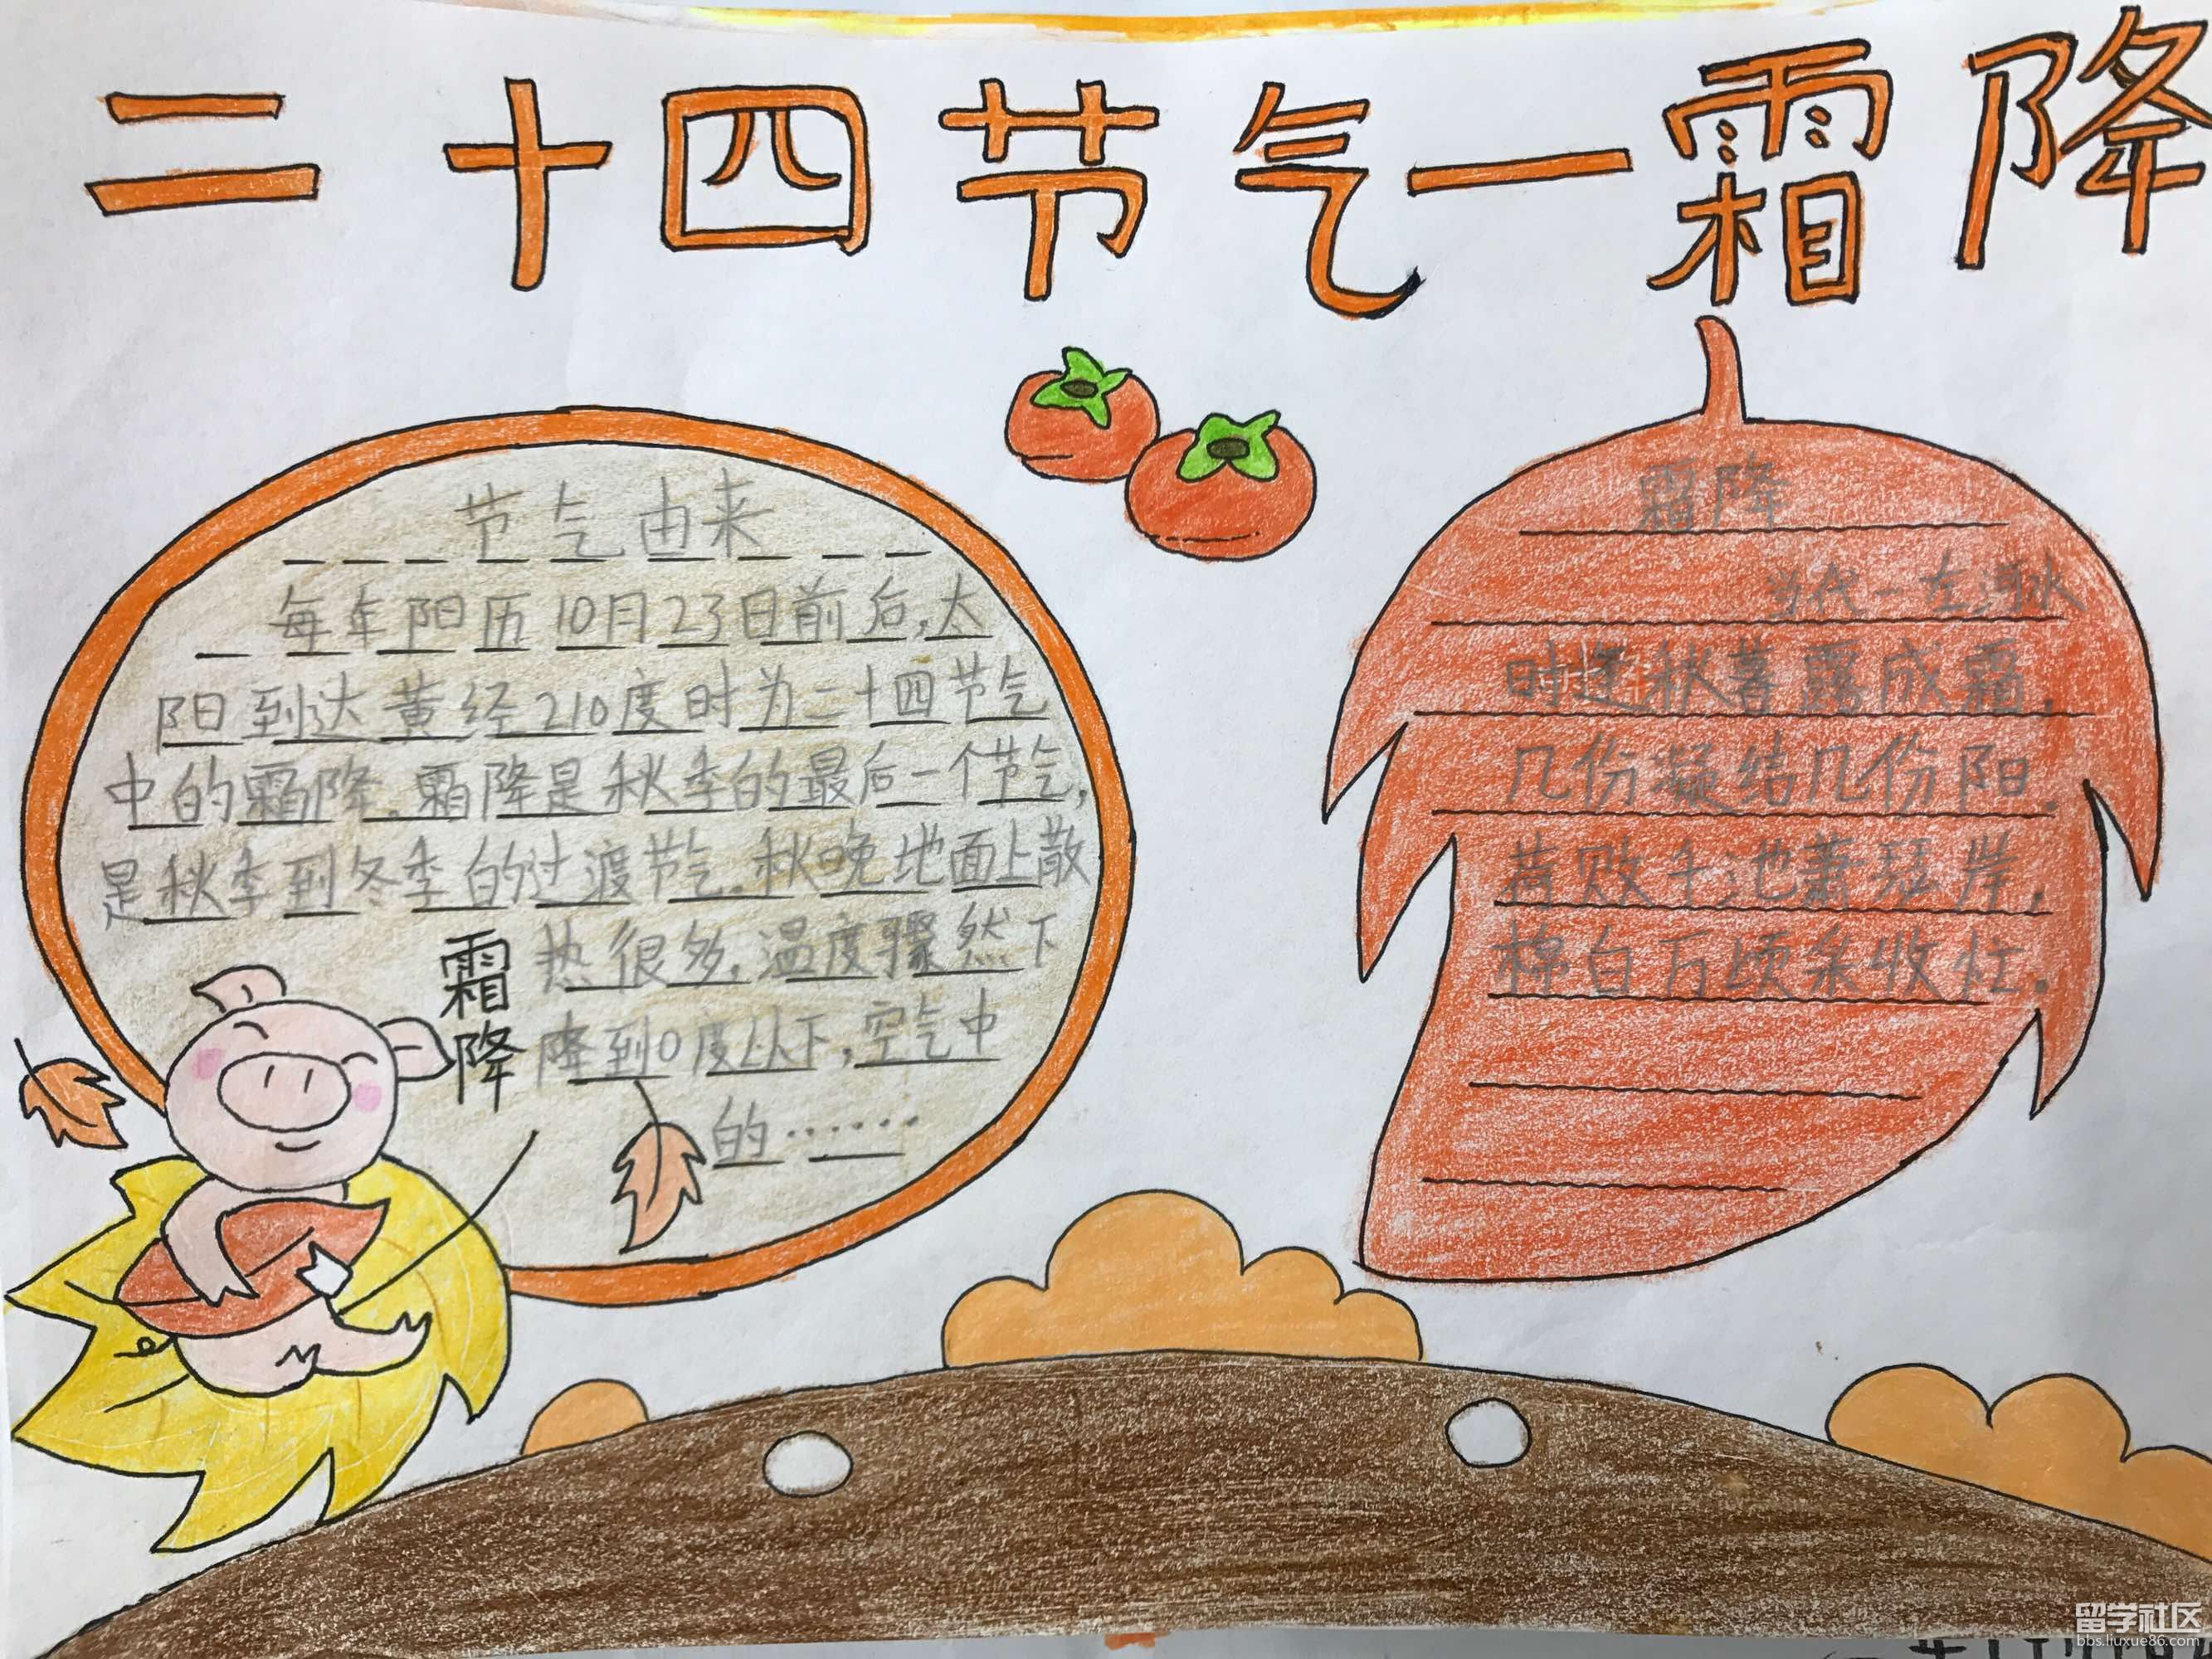 二十四节气一霜降
节气由来
每年阳历10月23日前后,太
阳到达黄经210度时为二十四节气
中的霜降.霜降是秋季的最后一个节气,
是秋季到冬季的过渡节气.秋晚地面上散
热很多,温度骤然下
降到0度以下,空气中
的……
霜降
霜降
当代一左河水
时逢秋暮露成霜,
几份凝结几份阳.
荷败千池萧瑟岸,
棉白万顷采收忙.
留学社区
bbs.liuxue86.com